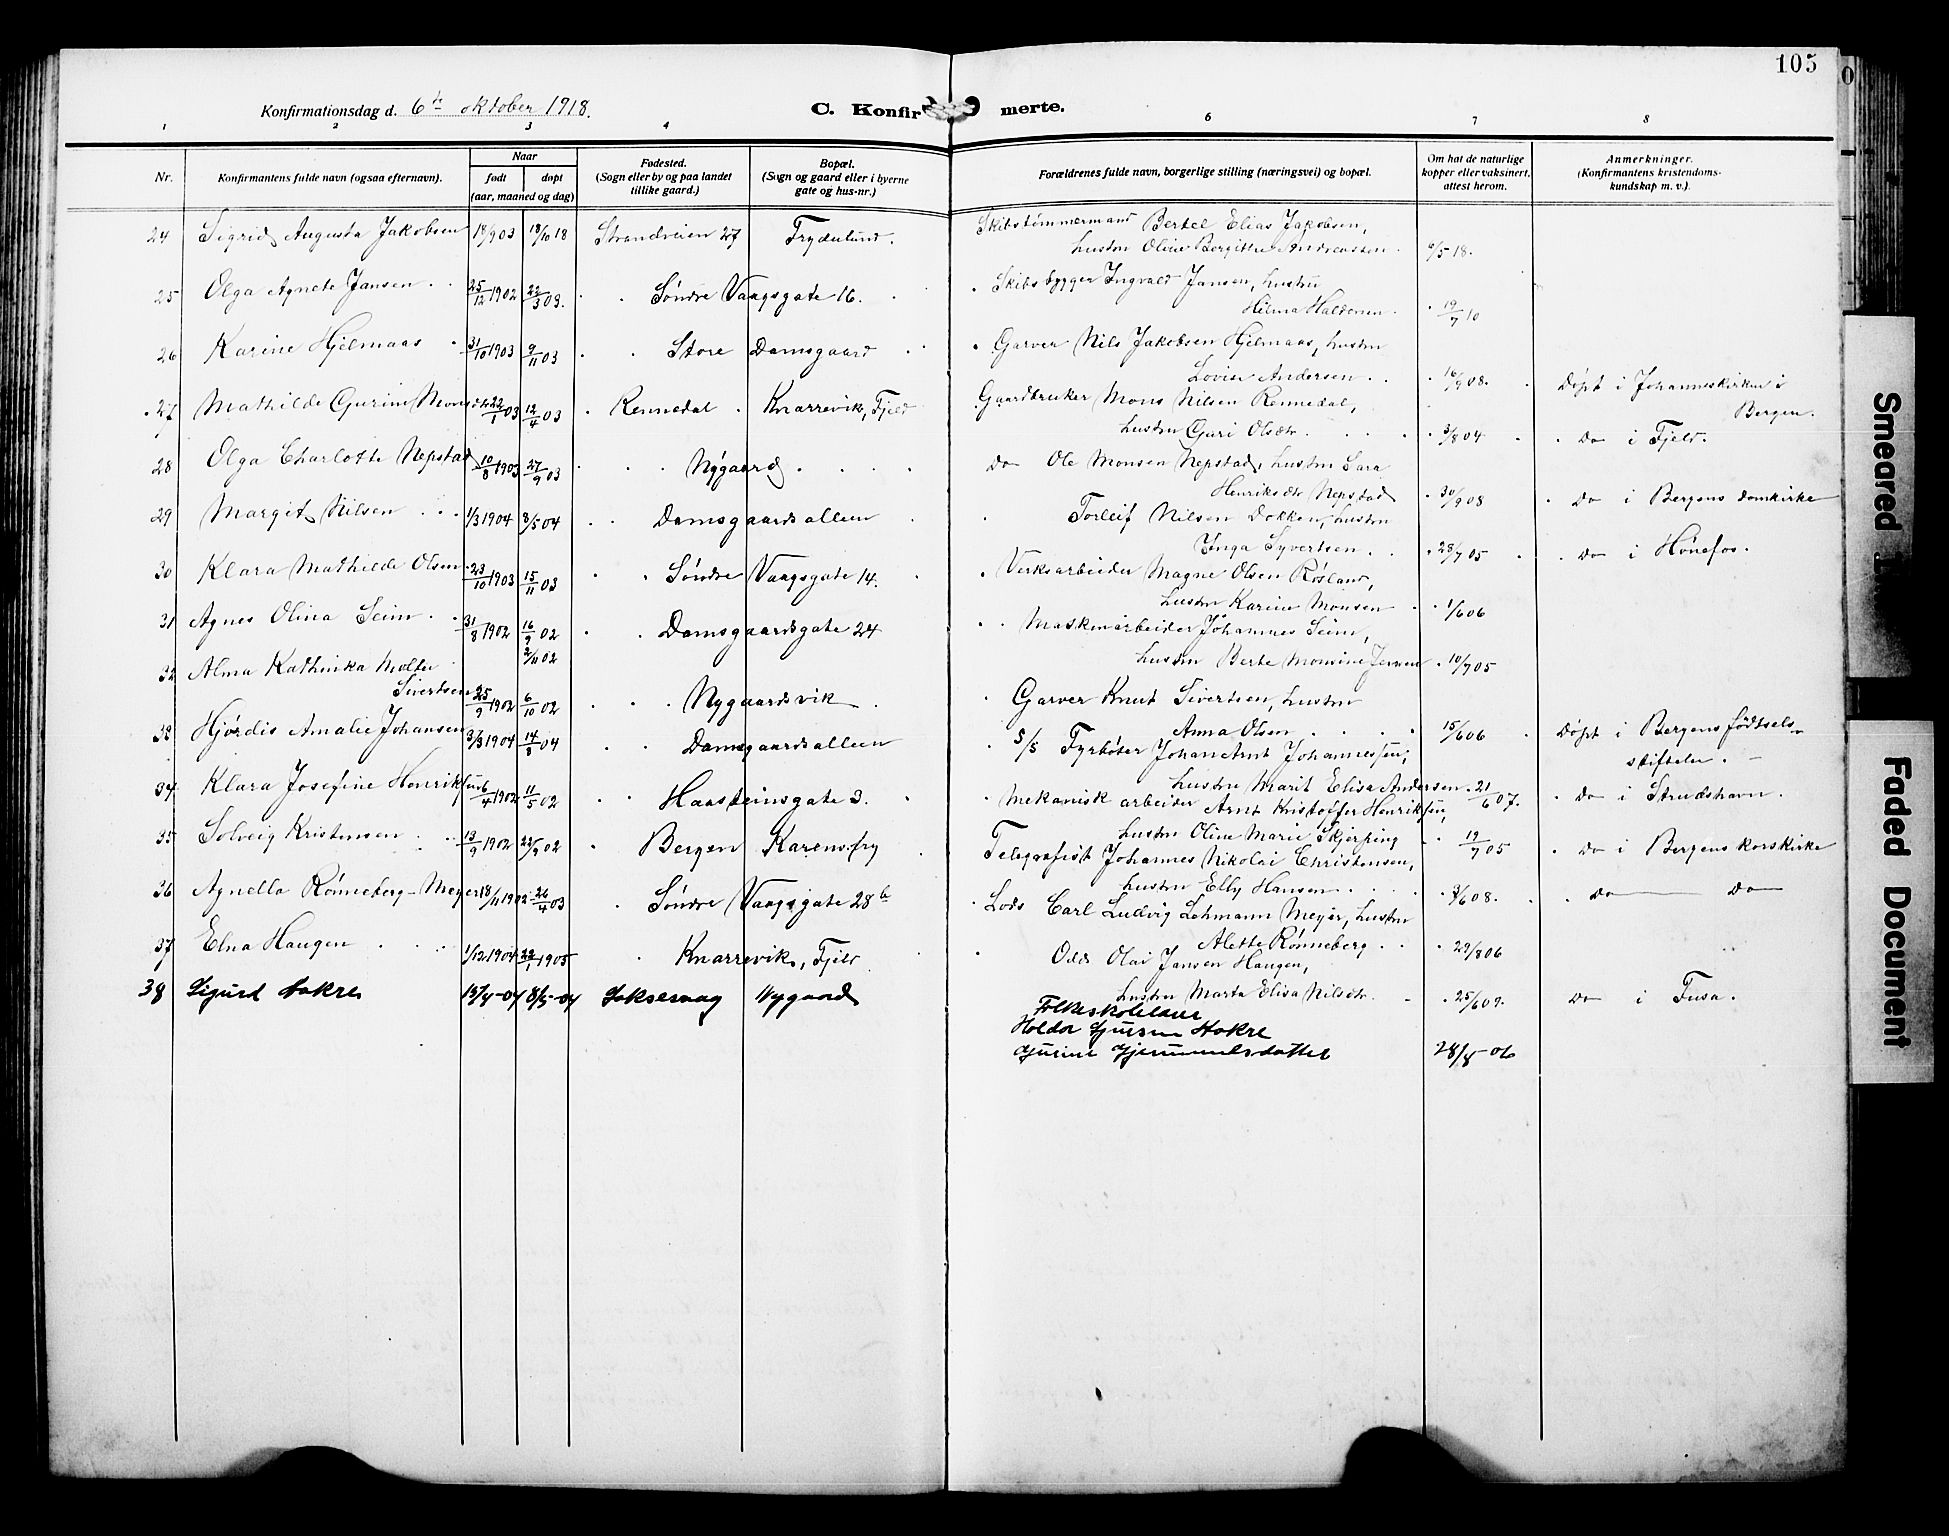 105
Konfirmationsdag d. 6te oktober 1918.
C. Konfirmerte.
1 2 3 4 6 7 8
Nr.
Konfirmantens fulde navn (ogsaa efternavn).
Naar
født døpt
(aar, maaned og dag)
Fødested.
(Sogn eller by og paa landet
tillike gaard.)
Bopæl.
(Sogn og gaard eller i byerne
gate og hus-nr.)
Forældrenes fulde navn, borgerlige stilling (næringsvei) og bopæl.
Om hat de naturlige
kopper eller vaksinert,
attest herom.
Anmerkninger.
(Konfirmantens kristendoms-
kundskap m. v.).
24 Sigrid Augusta Jakobsen 18/9 03 18/10 18 Strandveien 27 Frydenlund. Skibstømmermand Bertel Elias Jakobsen,
hustru Oline Bergitte Andreassen. 6/5 18.
25 Olga Agnete Jansen 25/12 1902 22/3 03. Søndre Vaagsgate 16. Skibsbygger Ingvald Jansen, hustru
Hilma Haldorsen. 19/7 10
26 Karine Hjelmaas 31/10 1903 9/11 03 Store Damsgaard Garver Nils Jakobsen Hjelmaas, hustru
Lovise Andersen 16/9 08. Døpt i Johanneskirken i
Bergen.
27 Mathilde Gurine Monsdtr 22/1 03 12/4 03 Rennedal Knarrevik, Fjeld Gaardbruker Mons Nilsen Rennedal,
hustru Guri Olsdtr. 3/8 04 do i Fjeld.
28 Olga Charlotte Nepstad 10/8 1903 27/9 03 Nygaard do Ole Monsen Nepstad, hustru Sara
Henriksdtr Nepstad 30/9 08 do i Bergens domkirke
29 Margit Nilsen 1/3 1904 8/5 04 Damsgaardsalleen Torleif Nilsen Dokken, hustru
Inga Syvertsen 28/7 05 do i Hønefos.
30 Klara Mathilde Olsen 23/10 1903 15/11 03 Søndre Vaagsgate 14. Verksarbeider Magne Olsen Røsland,
hustru Karine Monsen 1/6 06
31 Agnes Olina Seim 31/8 1902 16/9 02 Damsgaardsgate 24 Maskinarbeider Johannes Seim,
2/11 02
hustru Berte Monsine Jensen 10/7 05
32 Alma Kathinka Molter
Sivertsen 25/9 1902 6/10 02 Nygaardsvik Garver Knut Sivertsen, hustru
Anna Olsen 15/6 06 Døpt i Bergens fødsels-
stiftelse.
33 Hjørdis Amalie Johansen 31/3 1904 14/8 04 Damsgaardsalleen S/S Fyrbøter Johan Arnt Johannessen,
hustru Marit Elisa Andersen 21/6 07. do i Strudshavn.
34 Klara Josefine Henriksen 6/4 1902 11/5 02 Haasteinsgate 3. Mekanisk arbeider Arnt Kristoffer Henriksen,
hustru Oline Marie Skjerping 19/7 05 do i Bergens korskirke
35 Solveig Kristensen 13/9 1902 22/9 02 Bergen Karensfry Telegrafist Johannes Nikolai Christensen,
hustru Elly Hansen 3/6 08. do do
36 Agnella Rønneberg-Meyer 18/11 1902 26/4 03 Søndre Vaagsgate 28b Lods Carl Ludvig Lehmann Meyer, hustru
Alette Rønneberg 29/8 06
37 Elna Haugen 1/12 1904 22/1 1905 Knarrevik, Fjeld Odd Olai Jansen Haugen,
hustru Marta Elisa Nilsdtr. 25/6 09. do i Fusa.
38 Sigurd Hokre 13/4-04 8/5-04 Laksevaag Nygaard Folkeskolelærer
Haldor Sjursen Hokre
Gurine Gjermundsdatter 28/8-06
Smeared
Faded Document